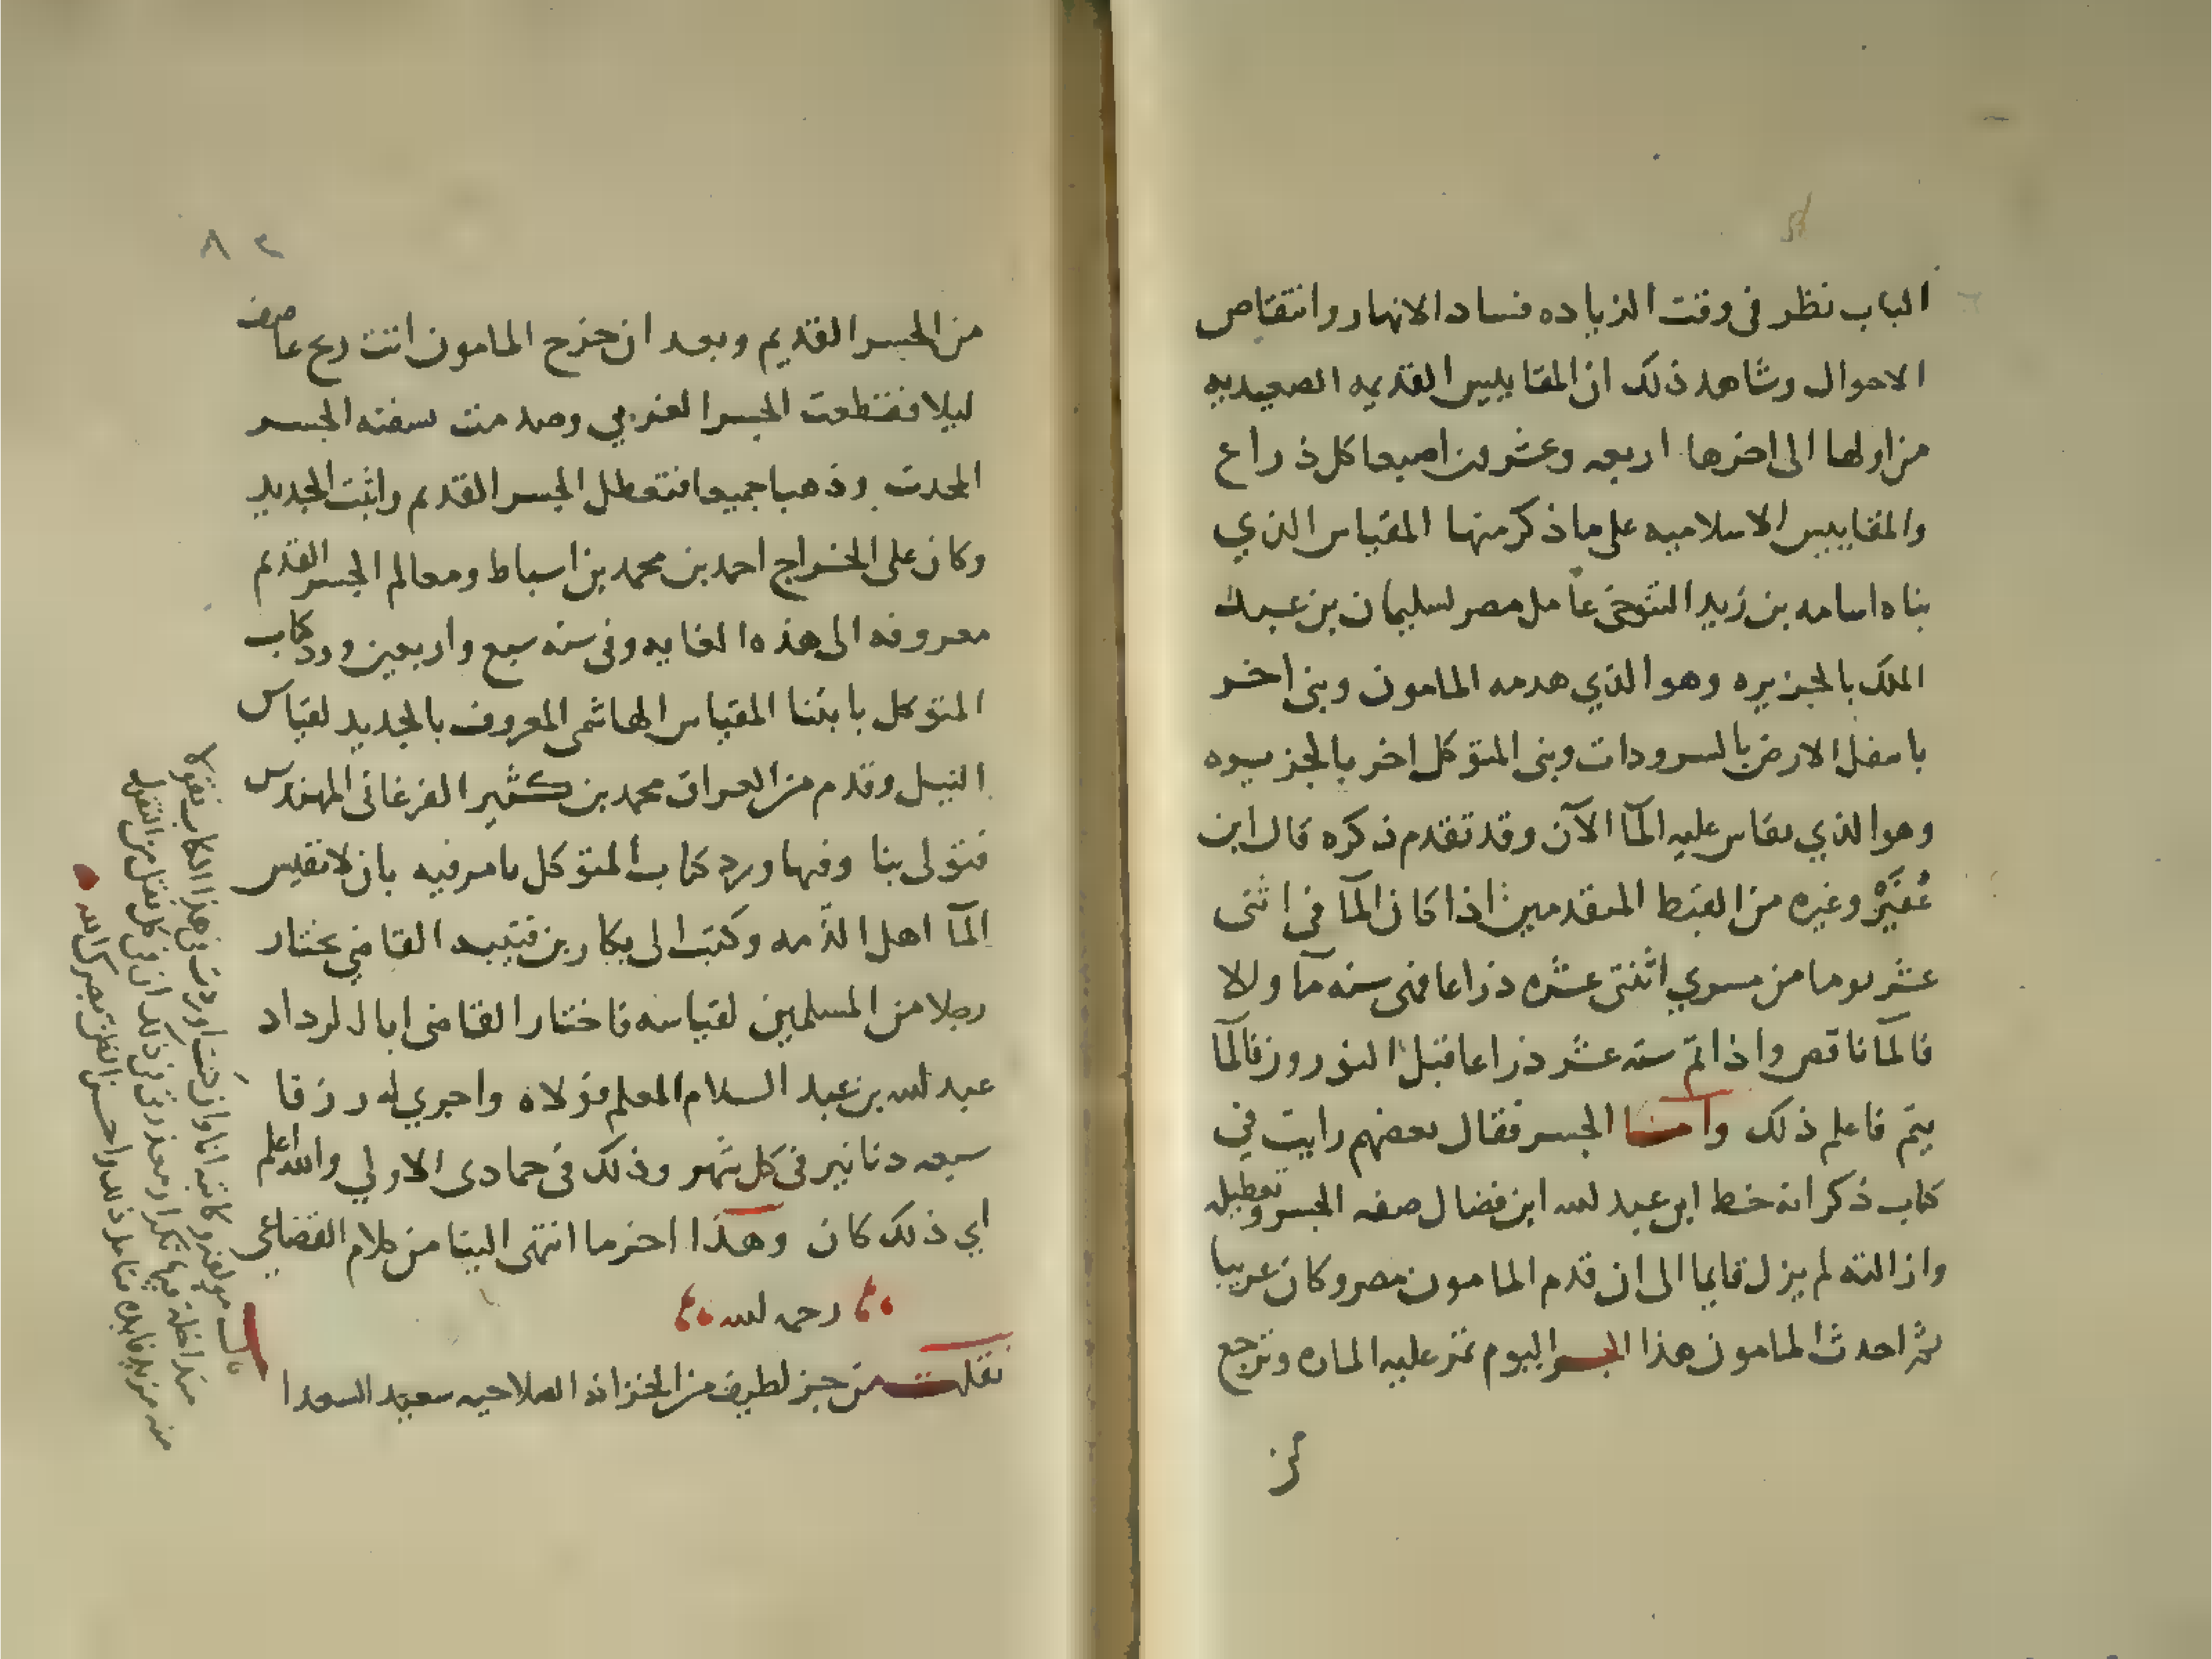 الباب نظر فى وقت الزياده فساد الانهار وانتقاص
الاحوال وشاهد ذلك ان المقاييس القديمه الصعيديه
من اولها الى اخرها اربعه وعشرين اصبعا كل ذراع
والمقاييس الاسلاميه على ما ذكر منها المقياس الذي
بناه اسامه بن زيد التنوخى عامل مصر لسليمان بن عبد
الملك بالجزيره وهو الذي هدمه المامون وبنى اخر
باسفل الارض بالسرودات وبنى المتوكل اخر بالجزيره
وهو الذي يقاس عليه المآ الآن وقد تقدم ذكره قال ابن
عُفَيْر وغيره من القبط المتقدمين اذا كان المآ فى اثنى
عشر يوما من مسري اثنتى عشره ذراعا فهى سنه مآ والا
فالمآ ناقص واذا تم سته عشر ذراعا قبل النوروز فالمآ
يتم فاعلم ذلك وامـا الجسر فقال بعضهم رايت في
كتاب ذكر انه خط ابى عبد لله ابن فضال صفه الجسر وتعطيله
وازالته لم يزل قايما الى ان قدم المامون مصر وكان غربيا
ثم احدث المامون هذا الجسر اليوم تمر عليه الماره وترجع
من
٢ ٨
من الجسر القديم وبعد ان خرج المامون اتت ريح عاصف
ليلا فقطعت الجسر الغربي وصدمت سفنه الجسر
المحدث وذهبا جميعا فتعطل الجسر القديم واثبت الجديد
وكان على الخراج احمد بن محمد بن اسباط ومعالم الجسر القديم
معروفه الى هذه الغايه وفى سنه سبع واربعين ورد كتاب
المتوكل بابتنا المقياس الهاشمى المعروف بالجديد لقياس
النيل وقدم من العراق محمد بن كثير الفرغانى المهندس
فتولى بنا وفيها ورد كتاب المتوكل يامر فيه بان لا تقيس
المآ اهل الذمه وكتب الى بكار بن قتيبه القاضي بختار
رجلا من المسلمين لقياسه فاختار القاضى ابا الرداد
عبد لله بن عبد السلام المعلم فولاه واجري له رزقا
سبعه دنانير فى كل شهر وذلك فى جمادى الاولي والله اعلم
اي ذلك كان وهذا اخر ما انتهى الينا من كلام القضاعى
رحمه لله
نقلت من جز لطيف من الخزانه الصلاحيه سعيد السعدا
قال مولفه وكاتبه انا وان كنت اوردت فى هذا الكتاب نقولا
متداخله فيها تكرار وعذرى فى ذلك ان فى كل نقل من النقول
منه مزيد فايده فتامل ذلك واحسن النظر بصرك لله